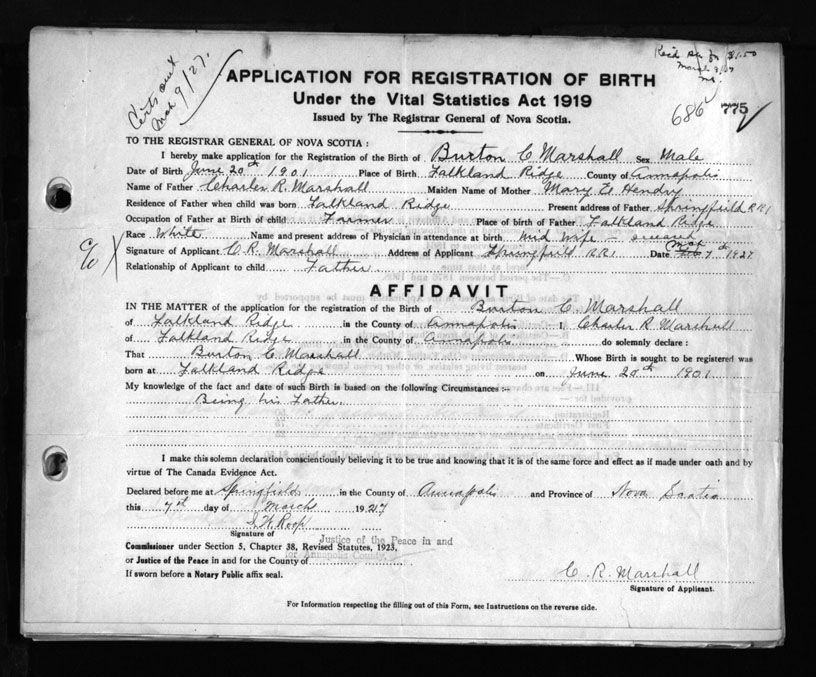 Certs out
Mch 9/27.
Rec'd $1.50
March 9/27
APPLICATION FOR REGISTRATION OF BIRTH
Under the Vital Statistics Act 1919
Issued by The Registrar General of Nova Scotia.
686 775
TO THE REGISTRAR GENERAL OF NOVA SCOTIA :
I hereby make application for the Registration of the Birth of Burton C Marshall Sex Male
Date of Birth June 20th 1901 Place of Birth Falkland Ridge County of Annapolis
Name of Father Charles R. Marshall Maiden Name of Mother Mary E. Hendry
Residence of Father when child was born Falkland Ridge Present address of Father Springfield R R 1
Occupation of Father at Birth of child Farmer Place of birth of Father Falkland Ridge
Race White Name and present address of Physician in attendance at birth mid wife -
Signature of Applicant C. R. Marshall Address of Applicant Springfield R R 1 Date Mch 7th 1927
Relationship of Applicant to child Father
AFFIDAVIT
IN THE MATTER of the application for the registration of Birth of Burton C. Marshall
of Falkland Ridge in the County of Annapolis I Charles R Marshall
of Falkland Ridge in the County of Annapolis do solemnly declare :
That Burton C. Marshall Whose Birth is sought to be registered was
born at Falkland Ridge on June 20th 1901
My knowledge of the fact and date of such Birth is based on the following Circumstances :-
Being his Father.
I make this solemn declaration conscientiously believing it to be true and knowing that it is of the same force and effect as if made under oath and by
virtue of The Canada Evidence Act.
Declared before me at Springfield in the County of Annapolis and Province of Nova Scotia
this 7th day of March 1927
S. W. Roop
Signature of
Justice of the Peace in and
Commissioner under Section 5, Chapter 38, Revised Statutes, 1923,
for Annapolis County
or Justice of the Peace in and for the County of
If sworn before a Notary Public affix seal.
C. R. Marshall
Signature of Applicant.
For Information respecting the filling out of this Form, see Instructions on the reverse side.